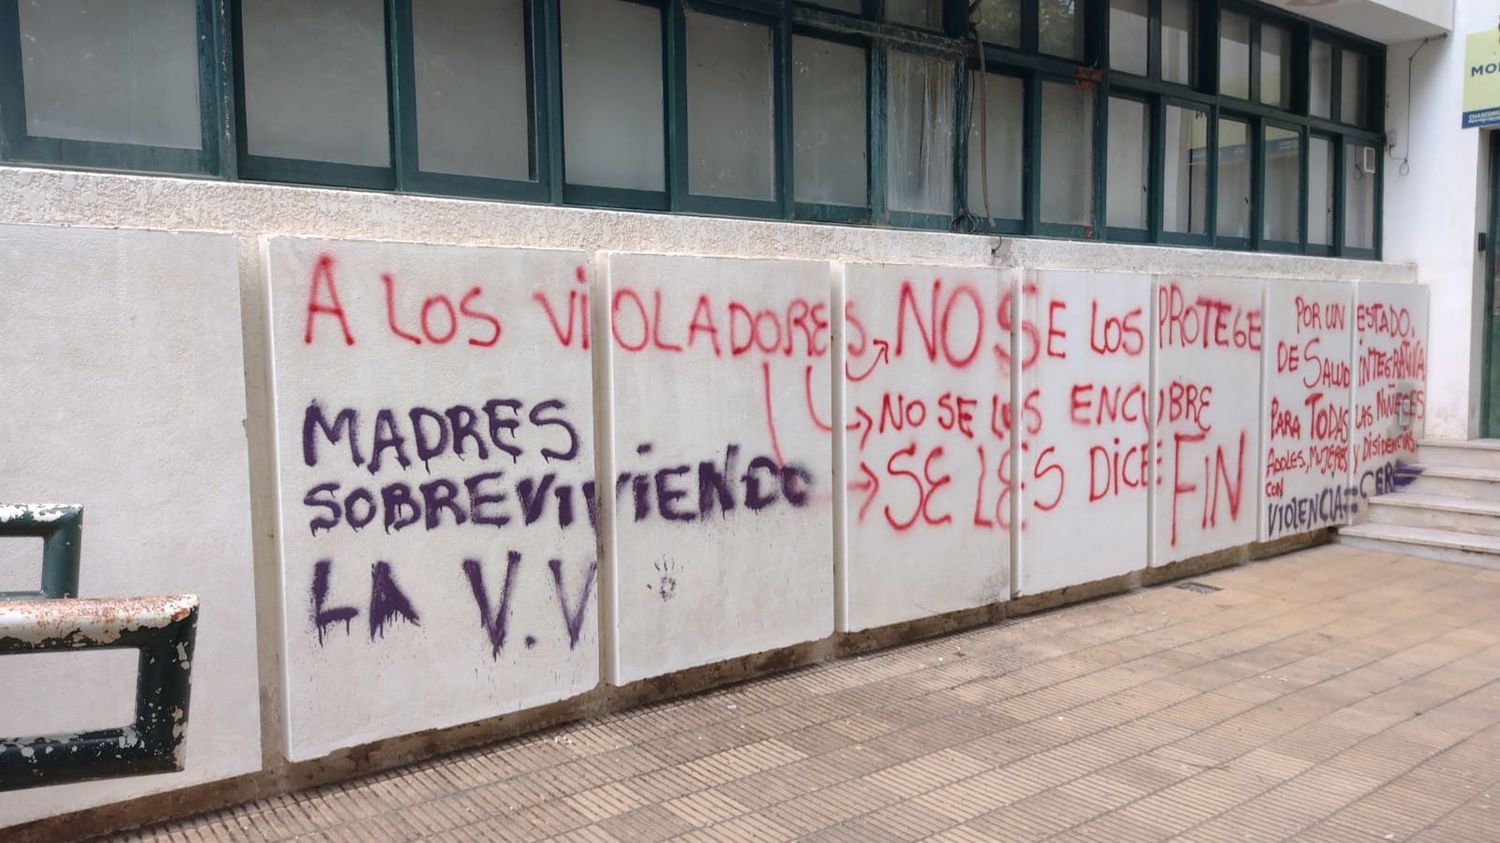 A LOS VIOLADORES NO SE LOS PROTEGE
NO SE LOS ENCUBRE
SE LES DICE FIN
MADRES
SOBREVIVIENDO
LA V.V
POR UN ESTADO.
DE SALUD INTEGRATIVA
PARA TODAS LAS NIÑECES
ADOLES, MUJERES Y DISIDENCIAS
CON
VIOLENCIA CERO
CHASCOMÚS